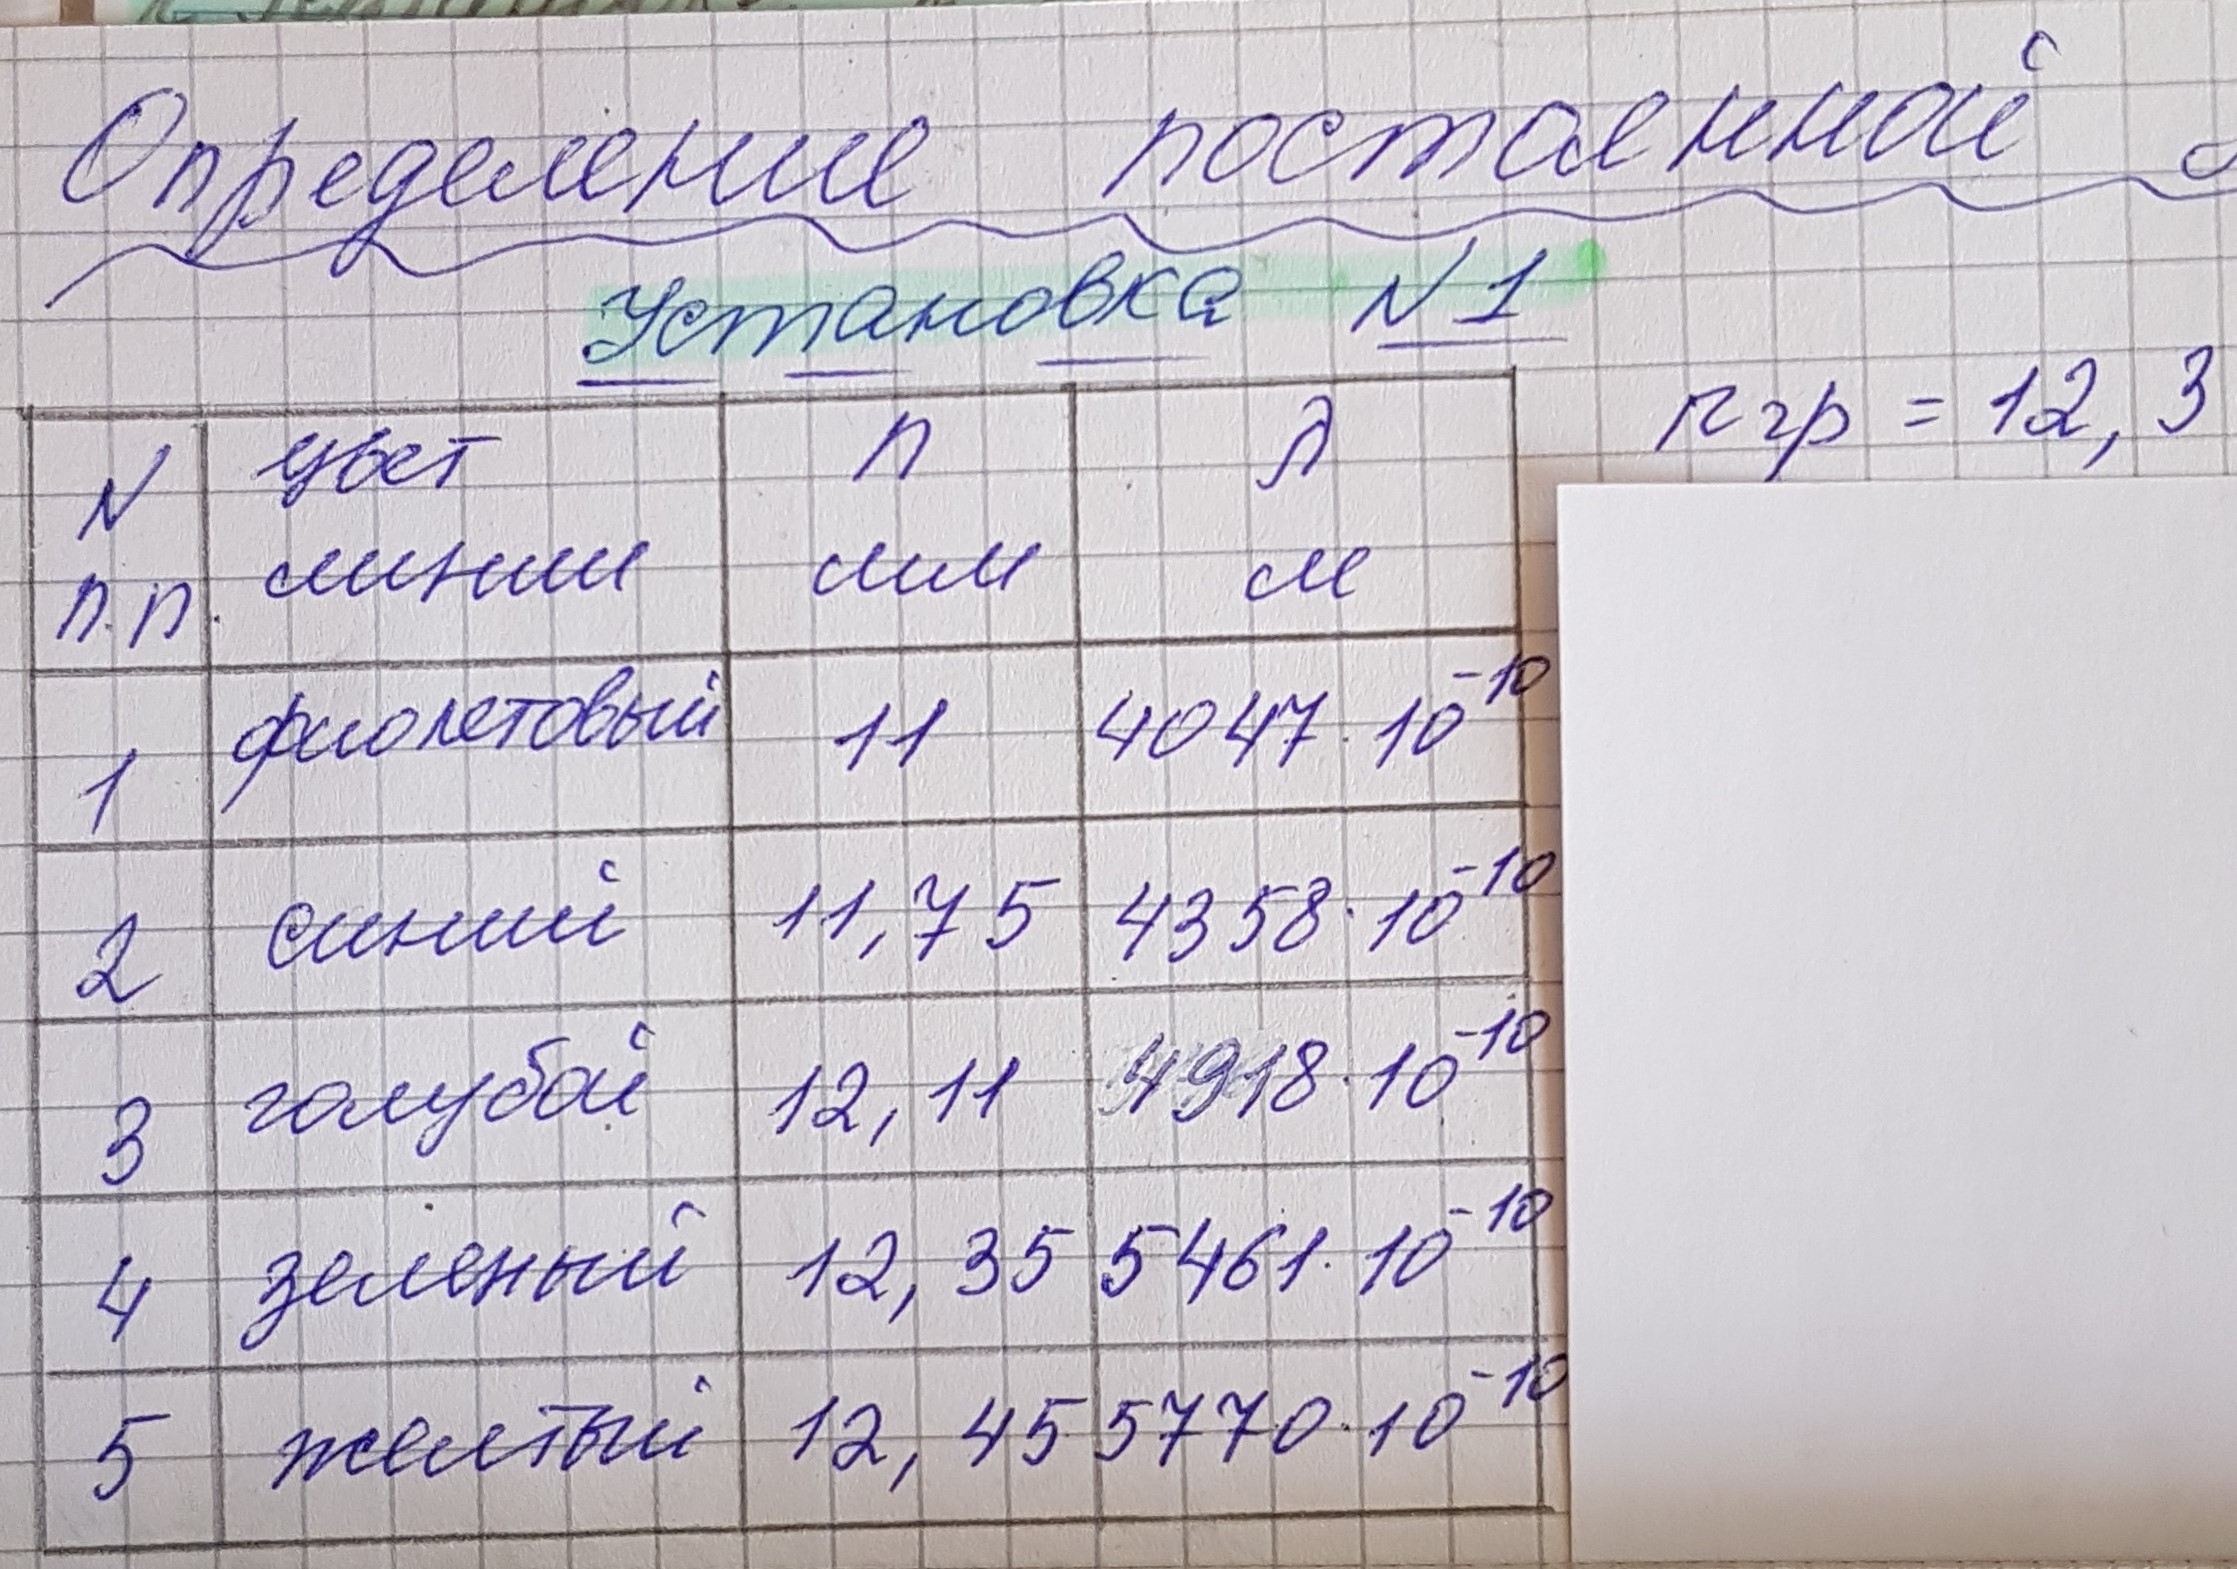 Определение постаянной
Установка N1
nгр = 12,3
N п.п. цвет линии n мм λ м
1 фиолетовый 11 4047·10⁻¹⁰
2 синий 11,75 4358·10⁻¹⁰
3 голубой 12,11 4918·10⁻¹⁰
4 зеленый 12,35 5461·10⁻¹⁰
5 желтый 12,45 5770·10⁻¹⁰